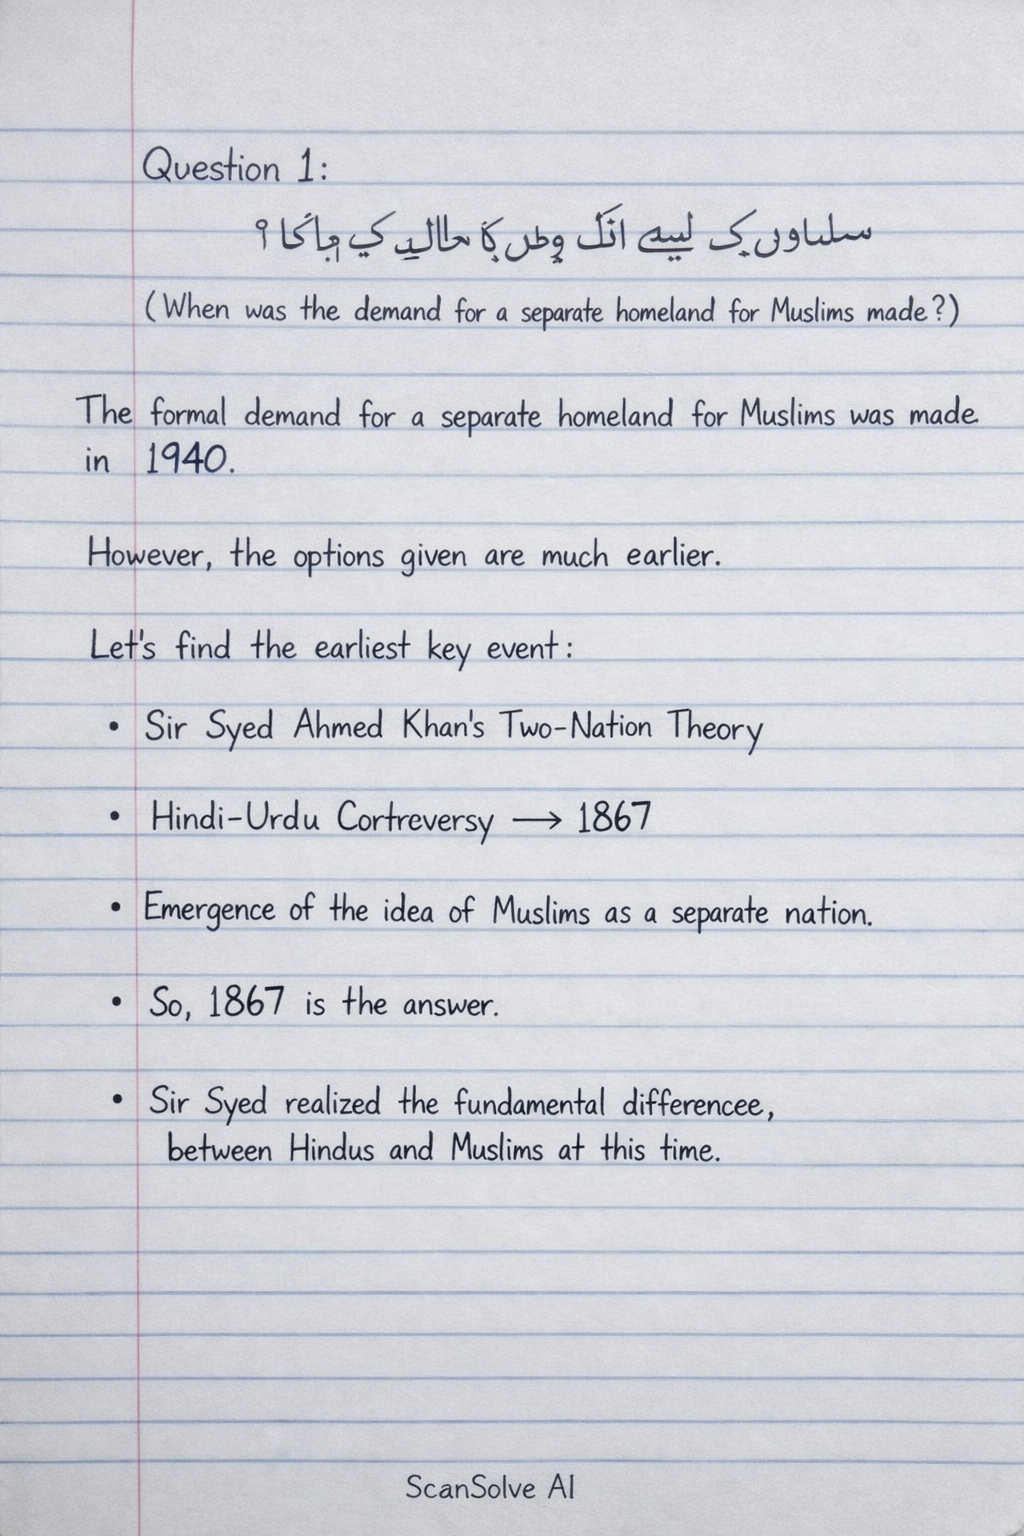 Question 1:
(When was the demand for a separate homeland for Muslims made?)
The formal demand for a separate homeland for Muslims was made
in 1940.
However, the options given are much earlier.
Let's find the earliest key event:
• Sir Syed Ahmed Khan's Two-Nation Theory
• Hindi-Urdu Cortreversy → 1867
• Emergence of the idea of Muslims as a separate nation.
• So, 1867 is the answer.
• Sir Syed realized the fundamental differencee,
between Hindus and Muslims at this time.
ScanSolve AI